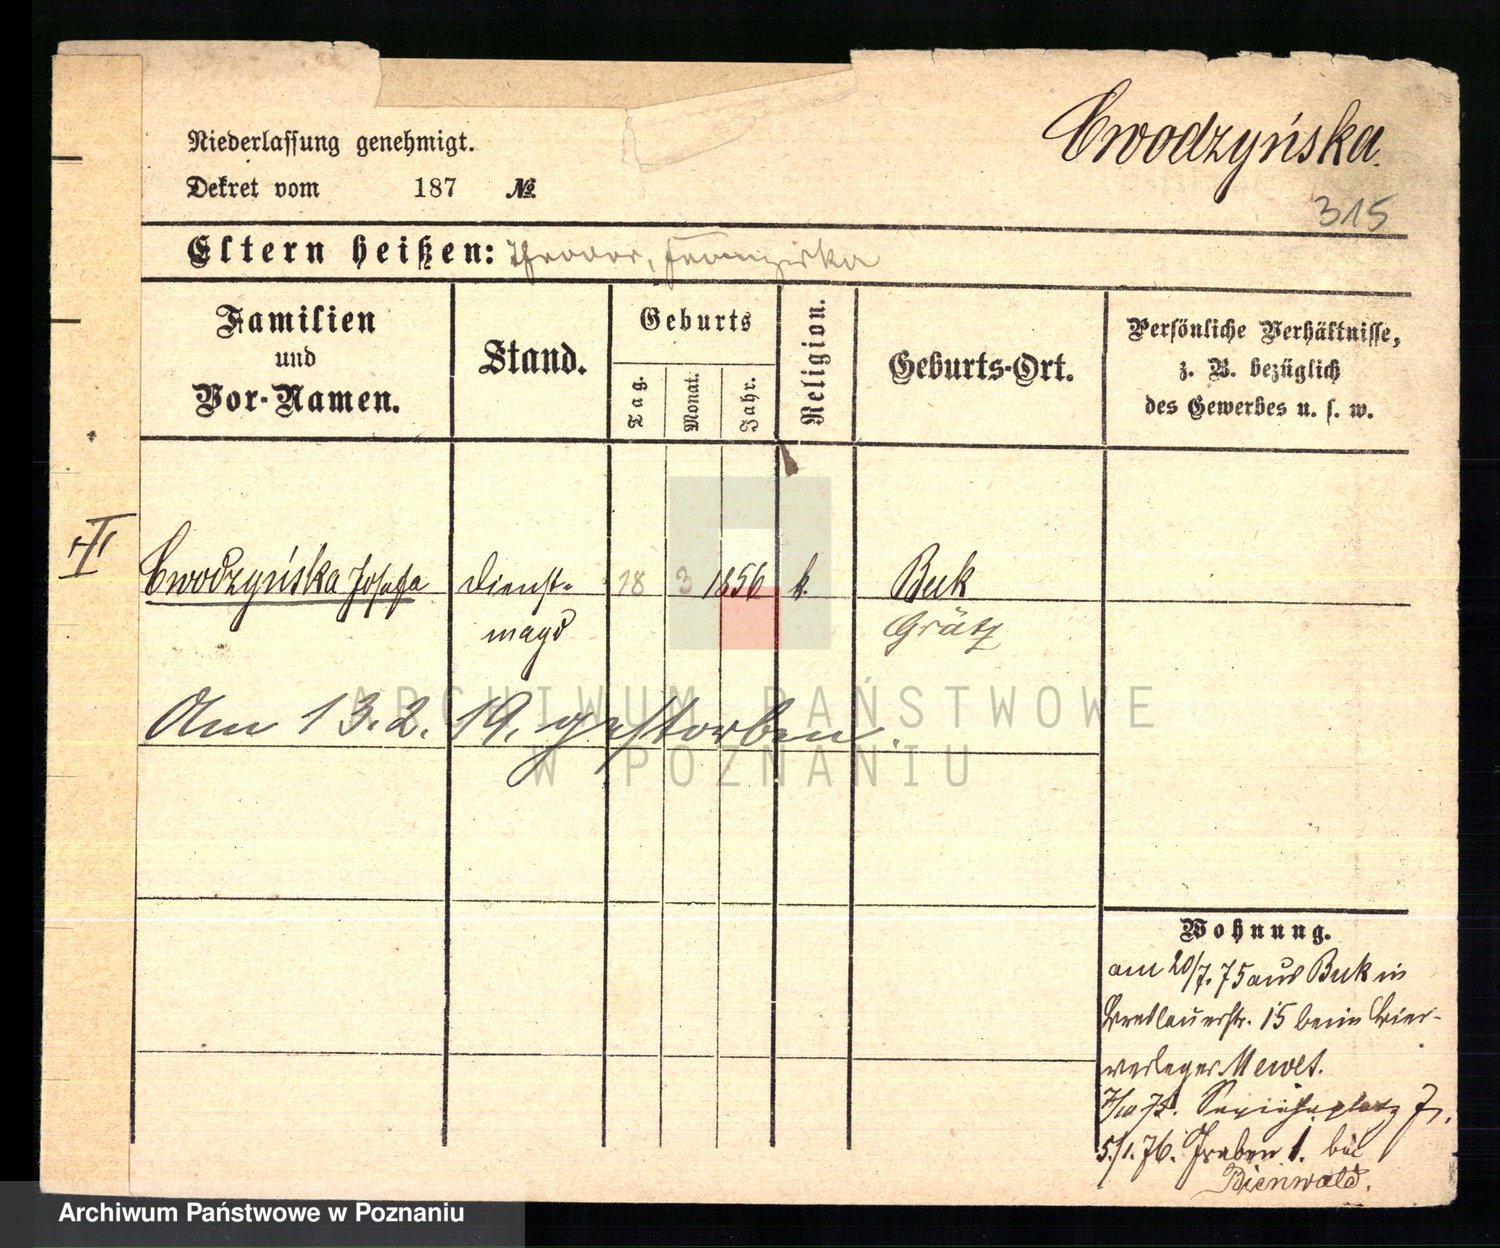 Niederlassung genehmigt.
Dekret vom 187 №
Cwodzyńska
315
Eltern heißen: Theodor, Franziska
Familien und Vor-Namen.
Stand.
Geburts
Tag.
Monat.
Jahr.
Religion.
Geburts-Ort.
Persönliche Verhältnisse,
z. B. bezüglich
des Gewerbes u. s. w.
II
Cwodzyńska Josefa Dienst- 18 3 1856 k. Buk
magd Grätz
Am 13.2.19. gestorben.
ARCHIWUM PAŃSTWOWE
W POZNANIU
Wohnung.
am 20/7.75 aus Buk in
Breslauerstr. 15 beim Bier-
verleger Mewes.
7/10 75. Sapiehaplatz 7,
5./1.76. Graben 1. bei
Bienwald.
Archiwum Państwowe w Poznaniu